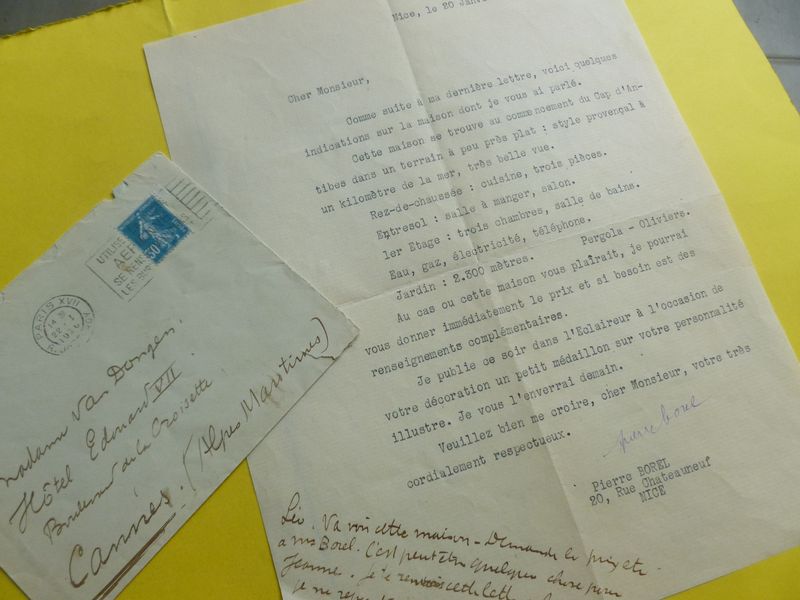 Nice, le 20 Janv
Cher Monsieur,
Comme suite à ma dernière lettre, voici quelques
indications sur la maison dont je vous ai parlé.
Cette maison se trouve au commencement du Cap d'An-
tibes dans un terrain à peu près plat : style provençal à
un kilomètre de la mer, très belle vue.
Rez-de-chaussée : cuisine, trois pièces.
Entresol : salle à manger, salon.
1er Etage : trois chambres, salle de bains.
Eau, gaz, électricité, téléphone.
Jardin : 2.300 mètres. Pergola - Oliviers.
Au cas ou cette maison vous plaîrait, je pourrai
vous donner immédiatement le prix et si besoin est des
renseignements complémentaires.
Je publie ce soir dans l'Eclaireur à l'occasion de
votre décoration un petit médaillon sur votre personnalité
illustre. Je vous l'enverrai demain.
Veuillez bien me croire, cher Monsieur, votre très
cordialement respectueux.
pierre borel
Pierre BOREL
20, Rue Chateauneuf
NICE
Léo. Va voir cette maison - Demande le prix etc
a mr Borel. C'est peut être quelque chose pour
Jeanne. je te renvois cette lettre
je ne
UTILISE
PARIS XVII
22 - 1
Madame Van Dongen.
Hôtel Edouard VII
Boulevard de la Croisette
Cannes. (Alpes Maritimes)